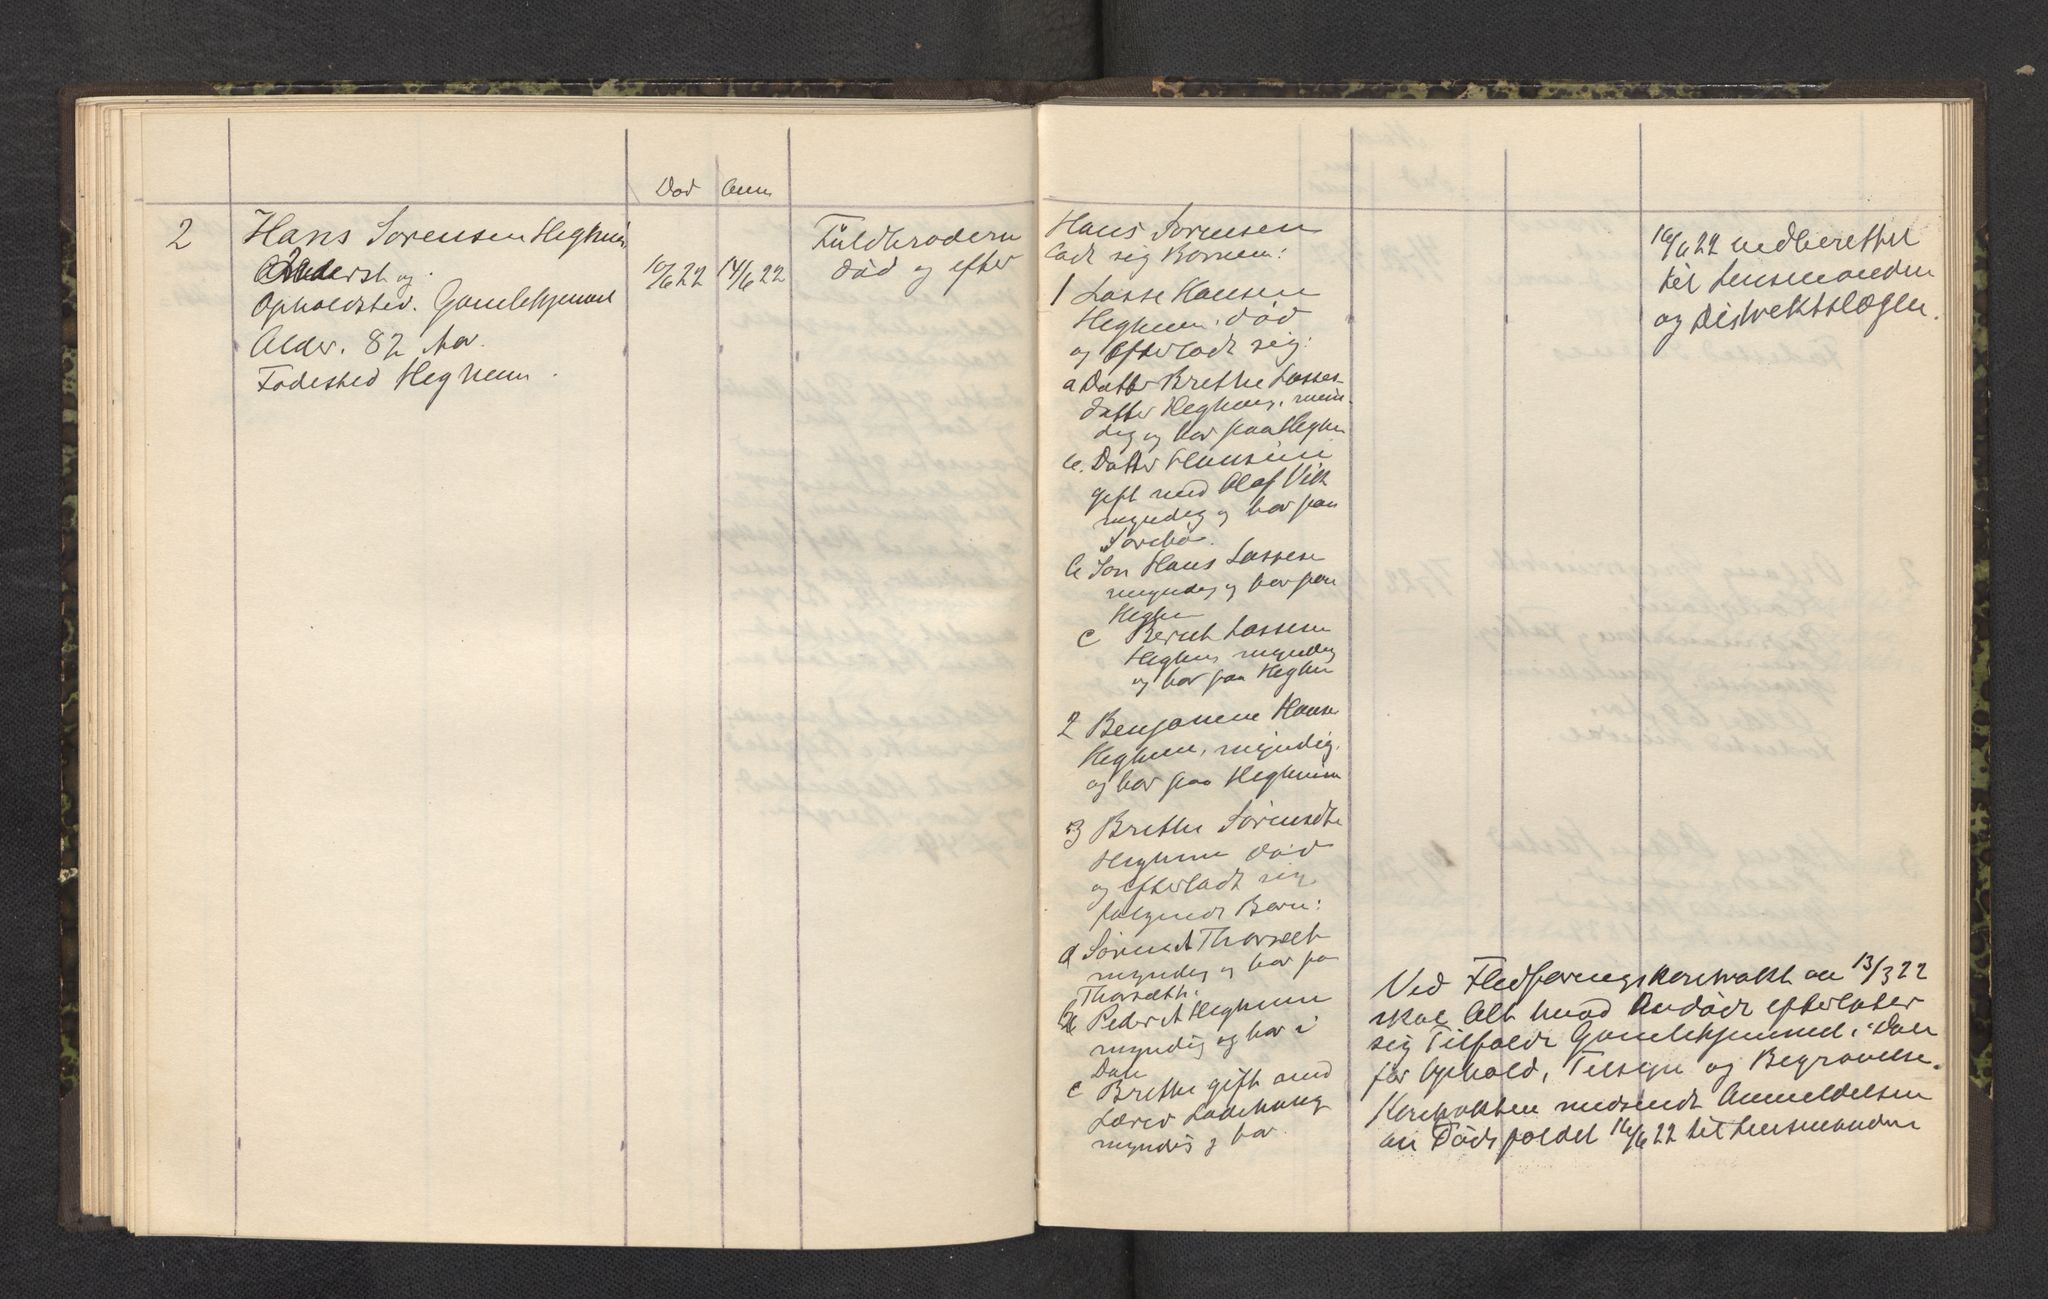 Død Anm
2
Hans Sørensen Heghem
og
Opholdsted. Gamlehjemmet
Alder. 82 Aar
Fødested Heghem.
10/6 22
14/6 22
Fuldbroderen
død og efter
Hans Sørensen
lodt sig Børnene:
1 Lasse Hansen
Heghem, død
og Efterlodt sig:
a Datter Brethe Lasses-
datter Heghem, mÿn-
dig og bor paa Heghem
b. Datter Hansine
gift med Olaf Vik
myndig og bor paa
b Søn Hans Lassen
myndig og bor paa
Heghem
c Bernt Lassen
Heghem myndig
og bor paa Heghem
2 Benjamine Hanse
Heghem, myndig,
og bor paa Heghem
3 Brethe Sørensdtr
Heghem død
og efterladt sig
følgende Børn:
a Søren A Thorseth
myndig og bor pa
Thorseth.
b Peder A Heghem
myndig og bor i
Dale
c Brethe gift med
Lærer Ladehaug
myndig og bor
16/6 22 indberettet
til Lensmanden
og Distriktslægen.
Ved Fledføringskontrakt av 13/3 22
skal Alt hvad Avdøde efterlater
sig Tilfalde Gamlehjemmet i Dale
for Ophold, Tilsyn og Begravelse.
Kontrakten medsendt Anmeldelsen
av Dødsfaldet 16/6 22 til Lensmanden